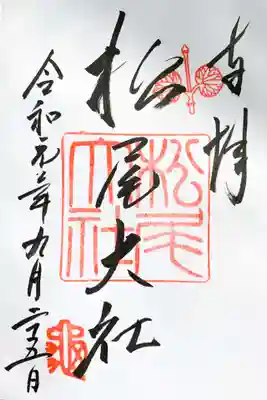 奉拝
松尾大社
松尾大社
令和元年九月二十五日